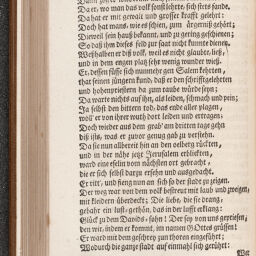 Da er, wo man das volk sonst lehrte, sich stets fande.
Da hat er mit gewalt und grosser krafft gelehrt:
Doch hat mans, wie es schien, zum ärgernüß gehört;
Dieweil sein hauß bekannt, und zu gering geschienen;
So daß ihm dieses feld zur saat nicht kunnte dienen.
Weßhalben er diß volk, weil es nicht glaubet, ließ,
und in dem engen platz sehr wenig wunder wieß.
Er, dessen füsse sich nunmehr gen Salem kehrten,
that seinen jüngern kund, daß er den schrifftgelehrten
und hohenpriestern da zum raube würde seyn;
Da warte nichts auf ihn, als leiden, schmach und pein;
Ja selbst den bittern tod, das ende aller plagen,
woll' er von ihrer wuth dort leiden und ertragen;
Doch wieder aus dem grab' am dritten tage gehn
diß ists, was er zuvor genug gab zu verstehn.
Da sie nun allbereit hin an den oelberg rückten,
und in der nähe jetzt Jerusalem erblickten,
ward eine eselin vom nächsten ort gebracht,
die er sich selbst darzu ersehn und ausgedacht.
Er ritt, und fieng nun an sich so der stadt zu zeigen.
Der weg war von dem volk bestreut mit laub und zweigen,
mit kleidern überdeckt; Die liebe, die sie drang,
gebahr ein lust-gethön, das in der lufft erklang:
Glück zu dem Davids-sohn! Der sey von uns gepriesen,
den wir, indem er kommt, im namen Gottes grüssen!
Er ward mit dem geschrey zun thoren eingeführt;
Wodurch die gantze stadt auf einmahl sich gerührt:
Wer